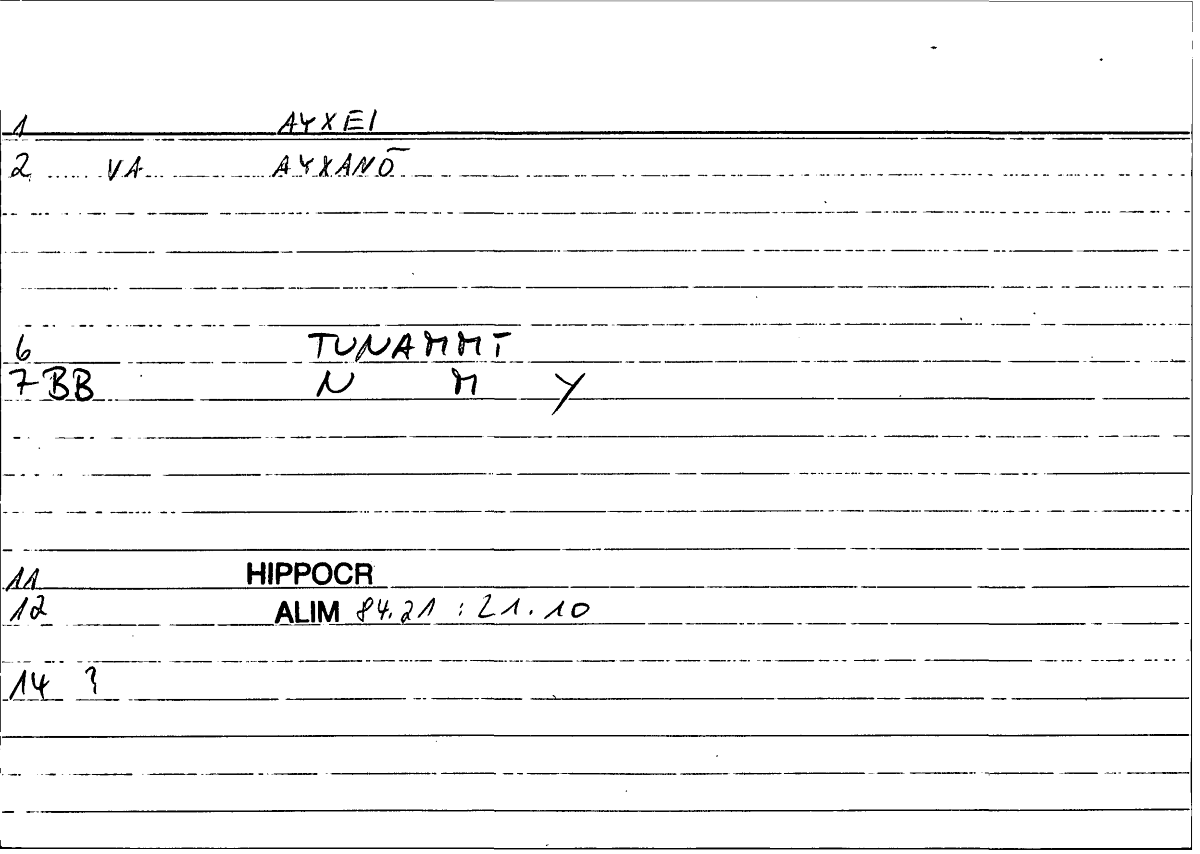 1 AYXEI
2 VA AYXANŌ
6 TUNAMMĪ
7 BB N M Y
11 HIPPOCR
12 ALIM 84.21 : 21.10
14 ?